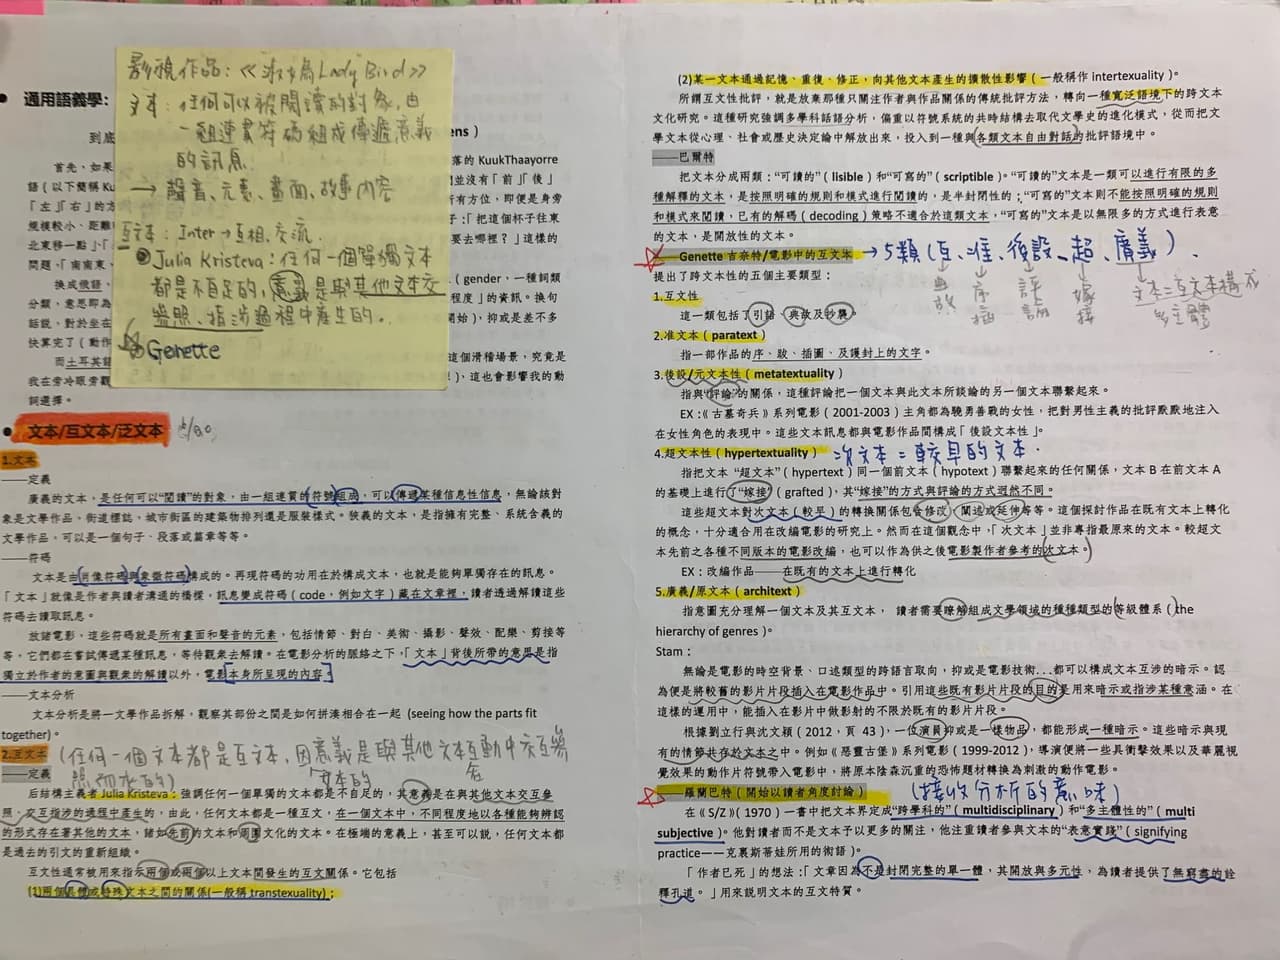 影視作品:《淑女鳥Lady Bird》
文本:任何可以被閱讀的對象,由
一組連貫符碼組成傳遞意義
的訊息
→ 聲音、元素、畫面、故事內容
互文本:Inter→互相、交流
Julia Kristeva:任何一個單獨文本
都是不自足的,意義是與其他文本交
參照、指涉過程中產生的。
☆Genette
● 通用語義學:
到底
ens)
首先,如果
落的 KuukThaayorre
語(以下簡稱 Ku
並沒有「前」「後」
「左」「右」的方
所有方位,即便是身旁
規模較小、距離
子:「把這個杯子往東
北東移一點」「
要去哪裡?」這樣的
問題,「南南東,
換成俄語,
(gender,一種詞類
分類,意思即為
程度」的資訊。換句
話說,對於坐在
開始),抑或是差不多
快算完了(動作
而土耳其語
這個滑稽場景,究竟是
我在旁冷眼旁觀
),這也會影響我的動
詞選擇。
● 文本/互文本/泛文本
1.文本
——定義
廣義的文本,是任何可以“閱讀”的對象,由一組連貫的符號組成,可以傳遞某種信息性信息,無論該對
象是文學作品、街道標誌,城市街區的建築物排列還是服裝樣式。狹義的文本,是指擁有完整、系統含義的
文學作品,可以是一個句子、段落或篇章等等。
——符碼
文本是由肖像符碼與象徵符碼構成的。再現符碼的功用在於構成文本,也就是能夠單獨存在的訊息。
「文本」就像是作者與讀者溝通的橋樑。訊息變成符碼(code,例如文字)藏在文章裡,讀者透過解讀這些
符碼去讀取訊息。
放諸電影,這些符碼就是所有畫面和聲音的元素,包括情節、對白、美術、攝影、聲效、配樂、剪接等
等。它們都在嘗試傳遞某種訊息,等待觀眾去解讀。在電影分析的脈絡之下,「文本」背後所帶的意思是指
獨立於作者的意圖與觀眾的解讀以外,電影本身所呈現的內容
——文本分析
文本分析是將一文學作品拆解,觀察其部份之間是如何拼湊相合在一起 (seeing how the parts fit
together)。
2.互文本 (任何一個文本都是互文本,因意義是與其他文本互動中交互參
——定義
后結構主義者 Julia Kristeva:強調任何一個單獨的文本都是不自足的,其意義是在與其他文本交互參
照、交互指涉的過程中產生的,由此,任何文本都是一種互文,在一個文本中,不同程度地以各種能夠辨認
的形式存在著其他的文本,諸如先前的文本和周圍文化的文本。在極端的意義上,甚至可以說,任何文本都
是過去的引文的重新組織。
互文性通常被用來指示兩個或兩個以上文本間發生的互文關係。它包括
(1)兩個具體或特殊文本之間的關係(一般稱 transtexuality);
(2)某一文本通過記憶、重復、修正,向其他文本產生的擴散性影響(一般稱作 intertexuality)。
所謂互文性批評,就是放棄那種只關注作者與作品關係的傳統批評方法,轉向一種寬泛語境下的跨文本
文化研究。這種研究強調多學科話語分析,偏重以符號系統的共時結構去取代文學史的進化模式,從而把文
學文本從心理、社會或歷史決定論中解放出來,投入到一種與各類文本自由對話的批評語境中。
——巴爾特
把文本分成兩類:“可讀的”(lisible)和“可寫的”(scriptible)。“可讀的”文本是一類可以進行有限的多
種解釋的文本,是按照明確的規則和模式進行閱讀的,是半封閉性的;“可寫的”文本則不能按照明確的規則
和模式來閱讀,已有的解碼(decoding)策略不適合於這類文本,“可寫的”文本是以無限多的方式進行表意
的文本,是開放性的文本。
☆——Genette 吉奈特/電影中的互文本 →5類(互、准、後設、超、廣義)。
提出了跨文本性的五個主要類型:
典故
序 插
評論
嫁接
文本=互文本構成
多主體
1.互文性
這一類包括了引語、典故及抄襲。
2.准文本(paratext)
指一部作品的序、跋、插圖、及護封上的文字。
3.後設/元文本性(metatextuality)
指與“評論”的關係,這種評論把一個文本與此文本所談論的另一個文本聯繫起來。
EX:《古墓奇兵》系列電影(2001-2003)主角都為驍勇善戰的女性,把對男性主義的批評默默地注入
在女性角色的表現中。這些文本訊息都與電影作品間構成「後設文本性」。
4.超文本性(hypertextuality) 次文本=較早的文本.
指把文本 “超文本”(hypertext)同一個前文本(hypotext)聯繫起來的任何關係,文本 B 在前文本 A
的基礎上進行了“嫁接”(grafted),其“嫁接”的方式與評論的方式迥然不同。
這些超文本對次文本(較早)的轉換關係包含修改、闡述或延伸等等。這個探討作品在既有文本上轉化
的概念,十分適合用在改編電影的研究上。然而在這個觀念中,「次文本」並非專指最原來的文本。較超文
本先前之各種不同版本的電影改編,也可以作為供之後電影製作者參考的次文本。
EX:改編作品——在既有的文本上進行轉化
5.廣義/原文本(architext)
指意圖充分理解一個文本及其互文本, 讀者需要瞭解組成文學領域的種種類型的等級體系(the
hierarchy of genres)。
Stam:
無論是電影的時空背景、口述類型的跨語言取向,抑或是電影技術...都可以構成文本互涉的暗示。認
為便是將較舊的影片片段插入在電影作品中。引用這些既有影片片段的目的是用來暗示或指涉某種意涵。在
這樣的運用中,能插入在影片中做影射的不限於既有的影片片段。
根據劉立行與沈文穎(2012,頁 43),一位演員抑或是一樣物品,都能形成一種暗示。這些暗示與現
有的情節共存於文本之中。例如《惡靈古堡》系列電影(1999-2012),導演便將一些具衝擊效果以及華麗視
覺效果的動作片符號帶入電影中,將原本陰森沉重的恐怖題材轉換為刺激的動作電影。
☆——羅蘭巴特(開始以讀者角度討論) (接收分析的意味)
在《S/Z》(1970)一書中把文本界定成“跨學科的”(multidisciplinary)和“多主體性的”(multi
subjective)。他對讀者而不是文本予以更多的關注,他注重讀者參與文本的“表意實踐”(signifying
practice——克裏斯蒂娃所用的術語)。
「作者已死」的想法:「文章因為不是封閉完整的單一體,其開放與多元性,為讀者提供了無窮盡的詮
釋孔道。」用來説明文本的互文特質。